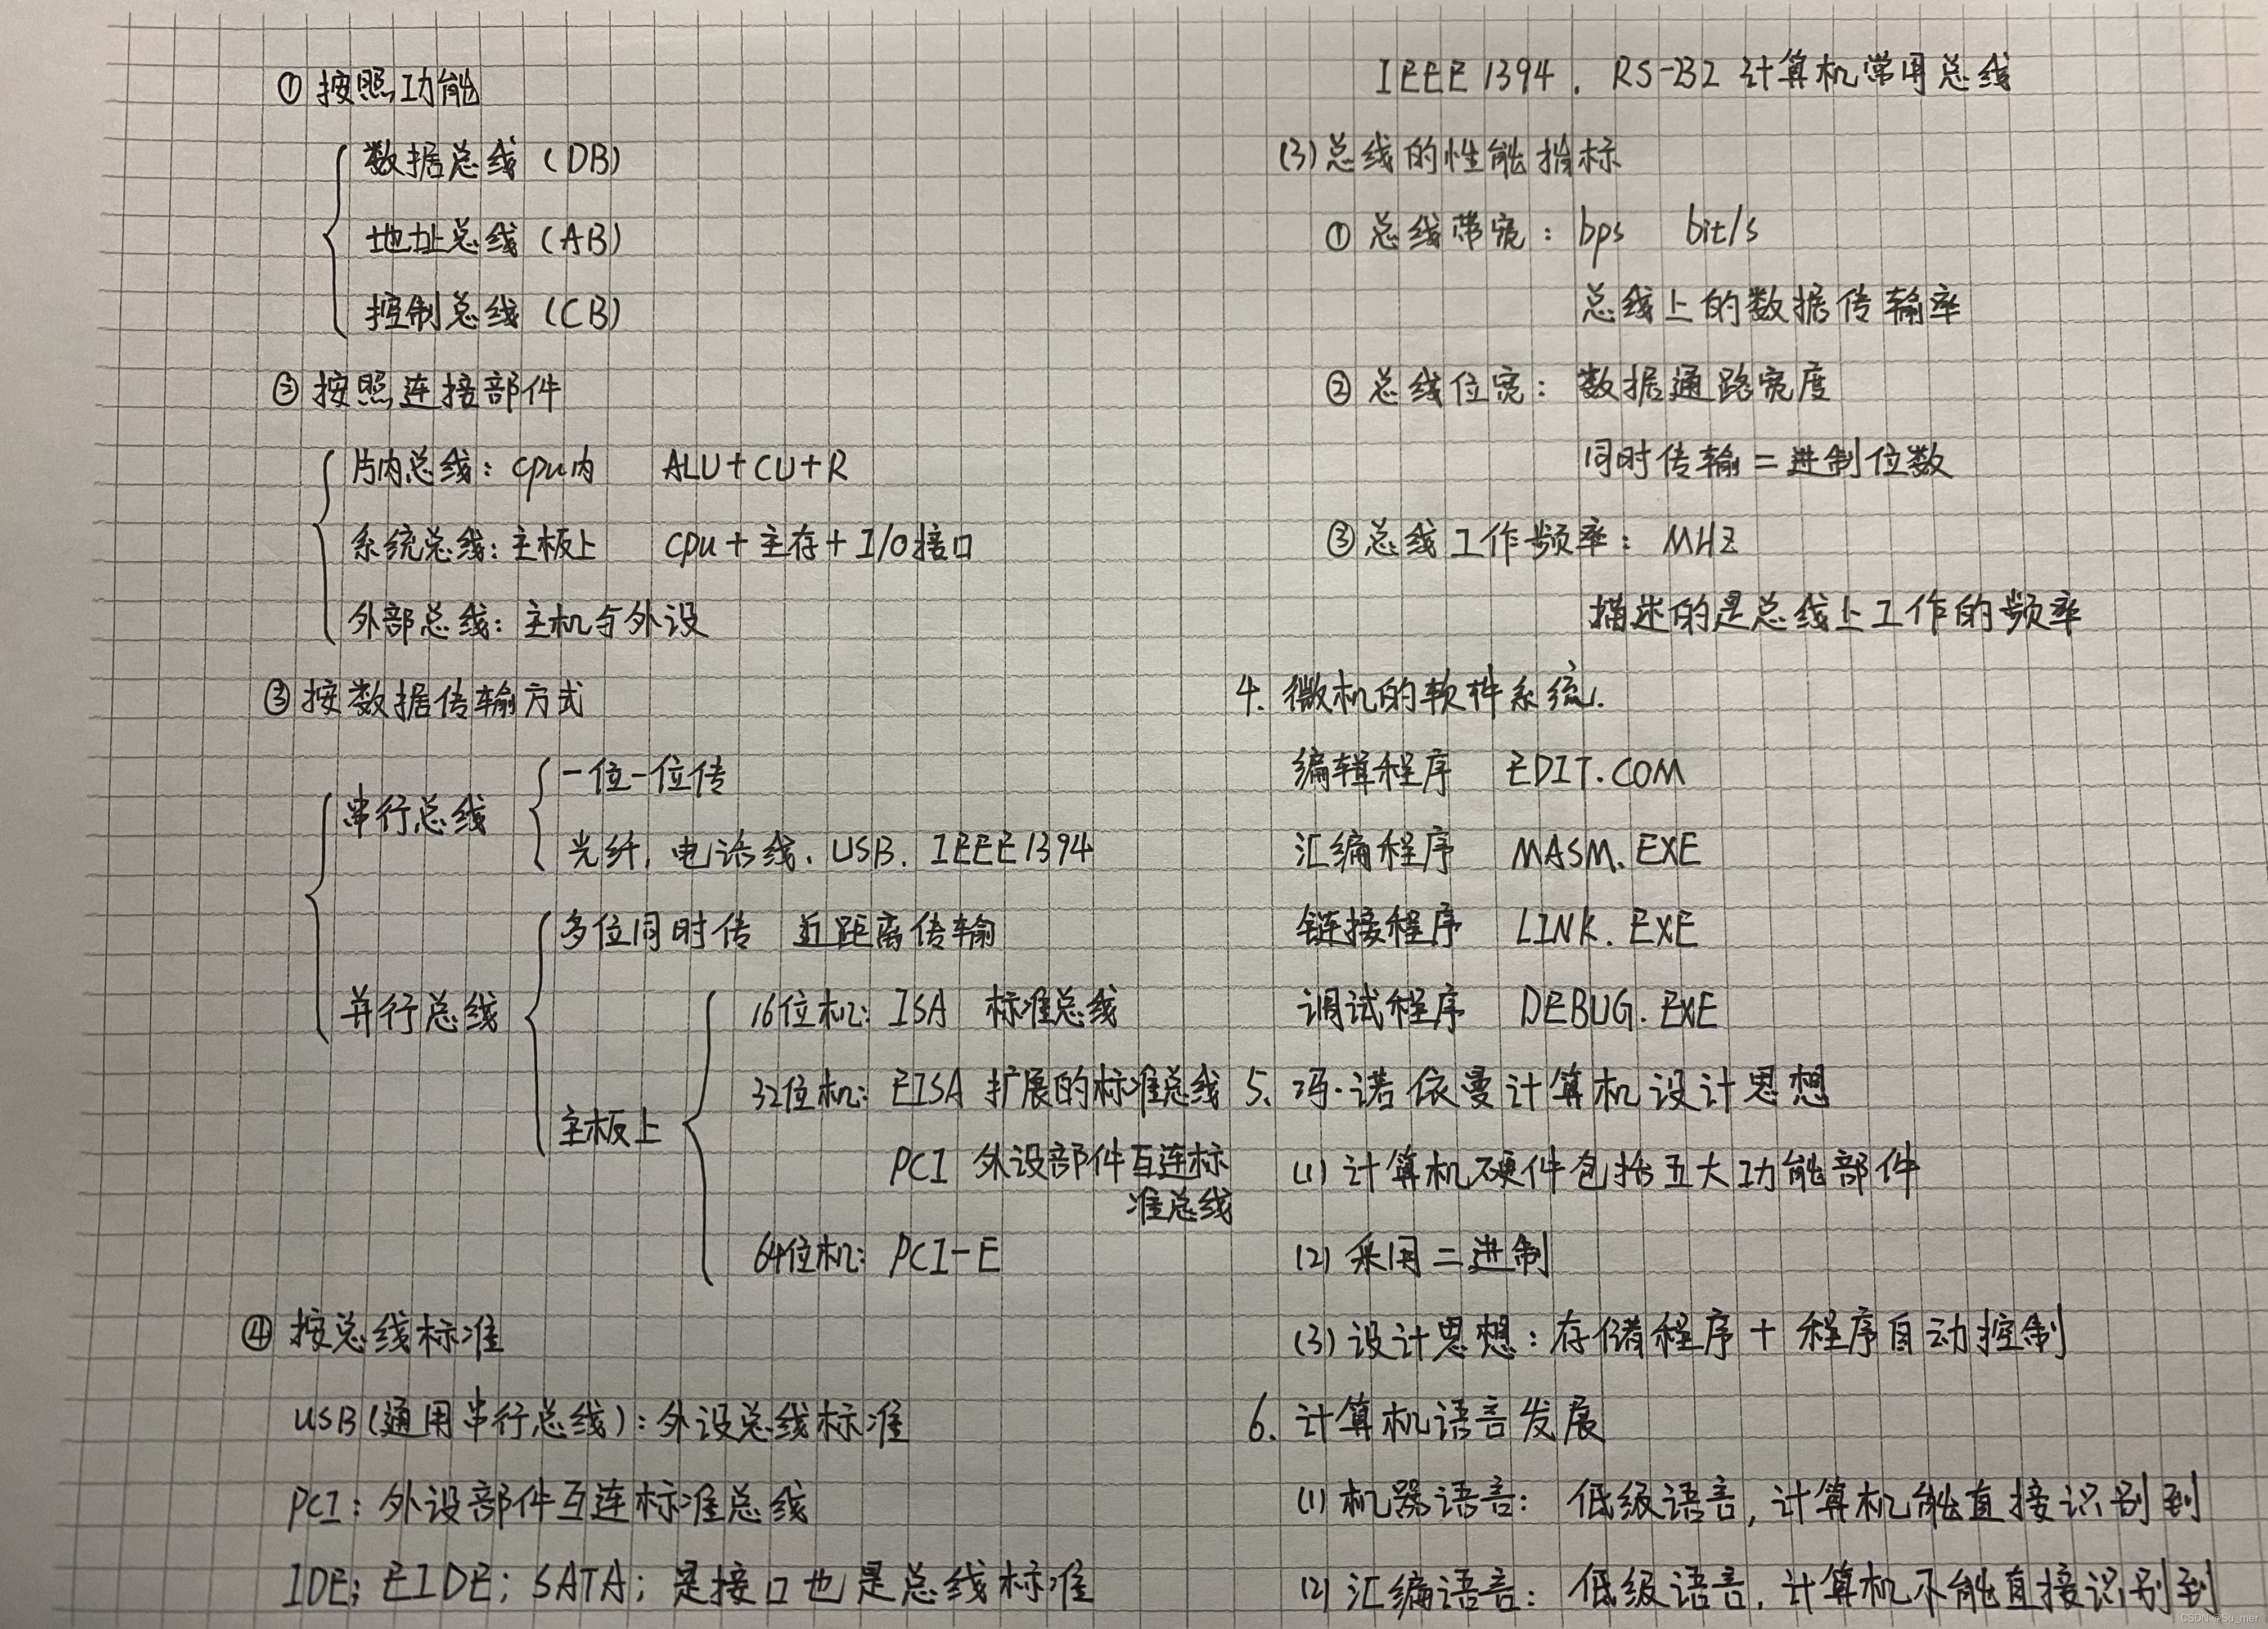 ① 按照功能
数据总线 (DB)
地址总线 (AB)
控制总线 (CB)
② 按照连接部件
片内总线: cpu内 ALU+CU+R
系统总线: 主板上 cpu+主存+I/O接口
外部总线: 主机与外设
③ 按数据传输方式
串行总线
一位一位传
光纤、电话线、USB、IEEE1394
并行总线
多位同时传 近距离传输
主板上
16位机: ISA 标准总线
32位机: EISA 扩展的标准总线
PCI 外设部件互连标
准总线
64位机: PCI-E
④ 按总线标准
USB(通用串行总线): 外设总线标准
PCI: 外设部件互连标准总线
IDE; EIDE; SATA; 是接口也是总线标准
IEEE1394、RS-232 计算机常用总线
(3) 总线的性能指标
① 总线带宽: bps bit/s
总线上的数据传输率
② 总线位宽: 数据通路宽度
同时传输二进制位数
③ 总线工作频率: MHZ
描述的是总线上工作的频率
4. 微机的软件系统.
编辑程序 EDIT.COM
汇编程序 MASM.EXE
链接程序 LINK.EXE
调试程序 DEBUG.EXE
5. 冯·诺依曼计算机设计思想
(1) 计算机硬件包括五大功能部件
(2) 采用二进制
(3) 设计思想: 存储程序 + 程序自动控制
6. 计算机语言发展
(1) 机器语言: 低级语言, 计算机能直接识别到
(2) 汇编语言: 低级语言, 计算机不能直接识别到
CSDN @Su_mer